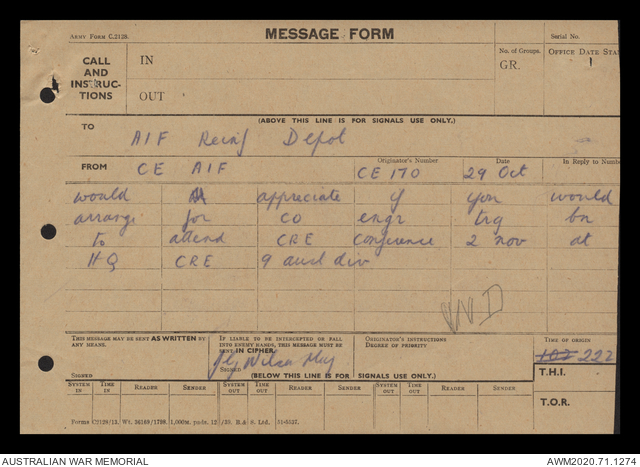 ARMY FORM C.2128.
MESSAGE FORM
Serial No.
CALL AND INSTRUC-TIONS
IN
No. of Groups. GR.
OFFICE DATE STA
1
OUT
(ABOVE THIS LINE IS FOR SIGNALS USE ONLY.)
TO AIF Reinf Depot
FROM CE AIF
Originator's Number CE 170
Date 29 Oct
In Reply to Numbe
would appreciate if you would
arrange for CO engr trg bn
to attend CRE conference 2 nov at
HQ CRE 9 aust div
THIS MESSAGE MAY BE SENT AS WRITTEN BY ANY MEANS.
IF LIABLE TO BE INTERCEPTED OR FALL INTO ENEMY HANDS, THIS MESSAGE MUST BE SENT IN CIPHER.
ORIGINATOR'S INSTRUCTIONS DEGREE OF PRIORITY
TIME OF ORIGIN
222
SIGNED
SIGNED Wilson Maj
T.H.I.
(BELOW THIS LINE IS FOR SIGNALS USE ONLY.)
SYSTEM IN TIME IN READER SENDER SYSTEM OUT TIME OUT READER SENDER SYSTEM OUT TIME OUT READER SENDER
T.O.R.
AUSTRALIAN WAR MEMORIAL
AWM2020.71.1274